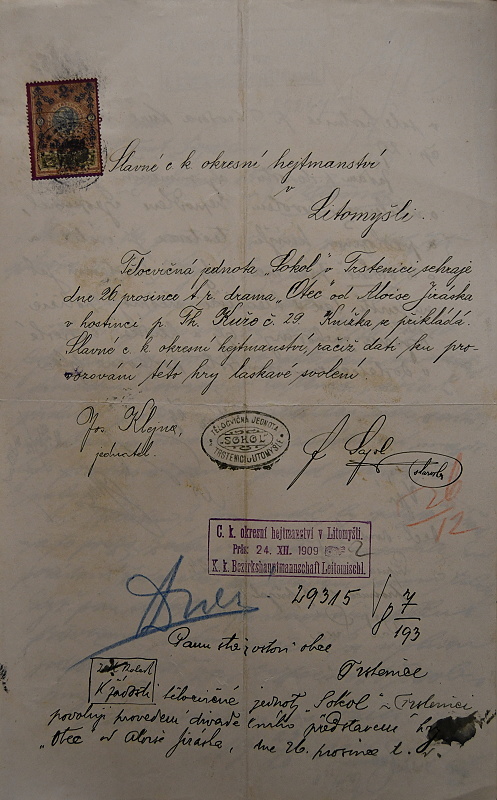 Slavné c. k. okresní hejtmanství
v
Litomyšli.
Tělocvičná jednota „Sokol" v Trstenici sehraje
dne 26. prosince t. r. drama „Otec" od Aloise Jiráska
v hostinci p. Th. Kuře č. 29. Knížka se přikládá.
Slavné c. k. okresní hejtmanství, račiž dáti ku pro-
vozování této hry laskavé svolení.
Jos. Klejna,
jednatel.
TĚLOCVIČNÁ JEDNOTA
SOKOL
starosta
26/12
C. k. okresní hejtmanství v Litomyšli.
Präs: 24. XII. 1909
K. k. Bezirkshauptmannschaft Leitomischl.
29315
7/193
Panu starostovi obce
Trstenice
K žádosti tělocvičné jednoty „Sokol" v Trstenici
povoluji provedení divadelního představení
„Otec" od Aloise Jiráska, dne 26. prosince t. r.